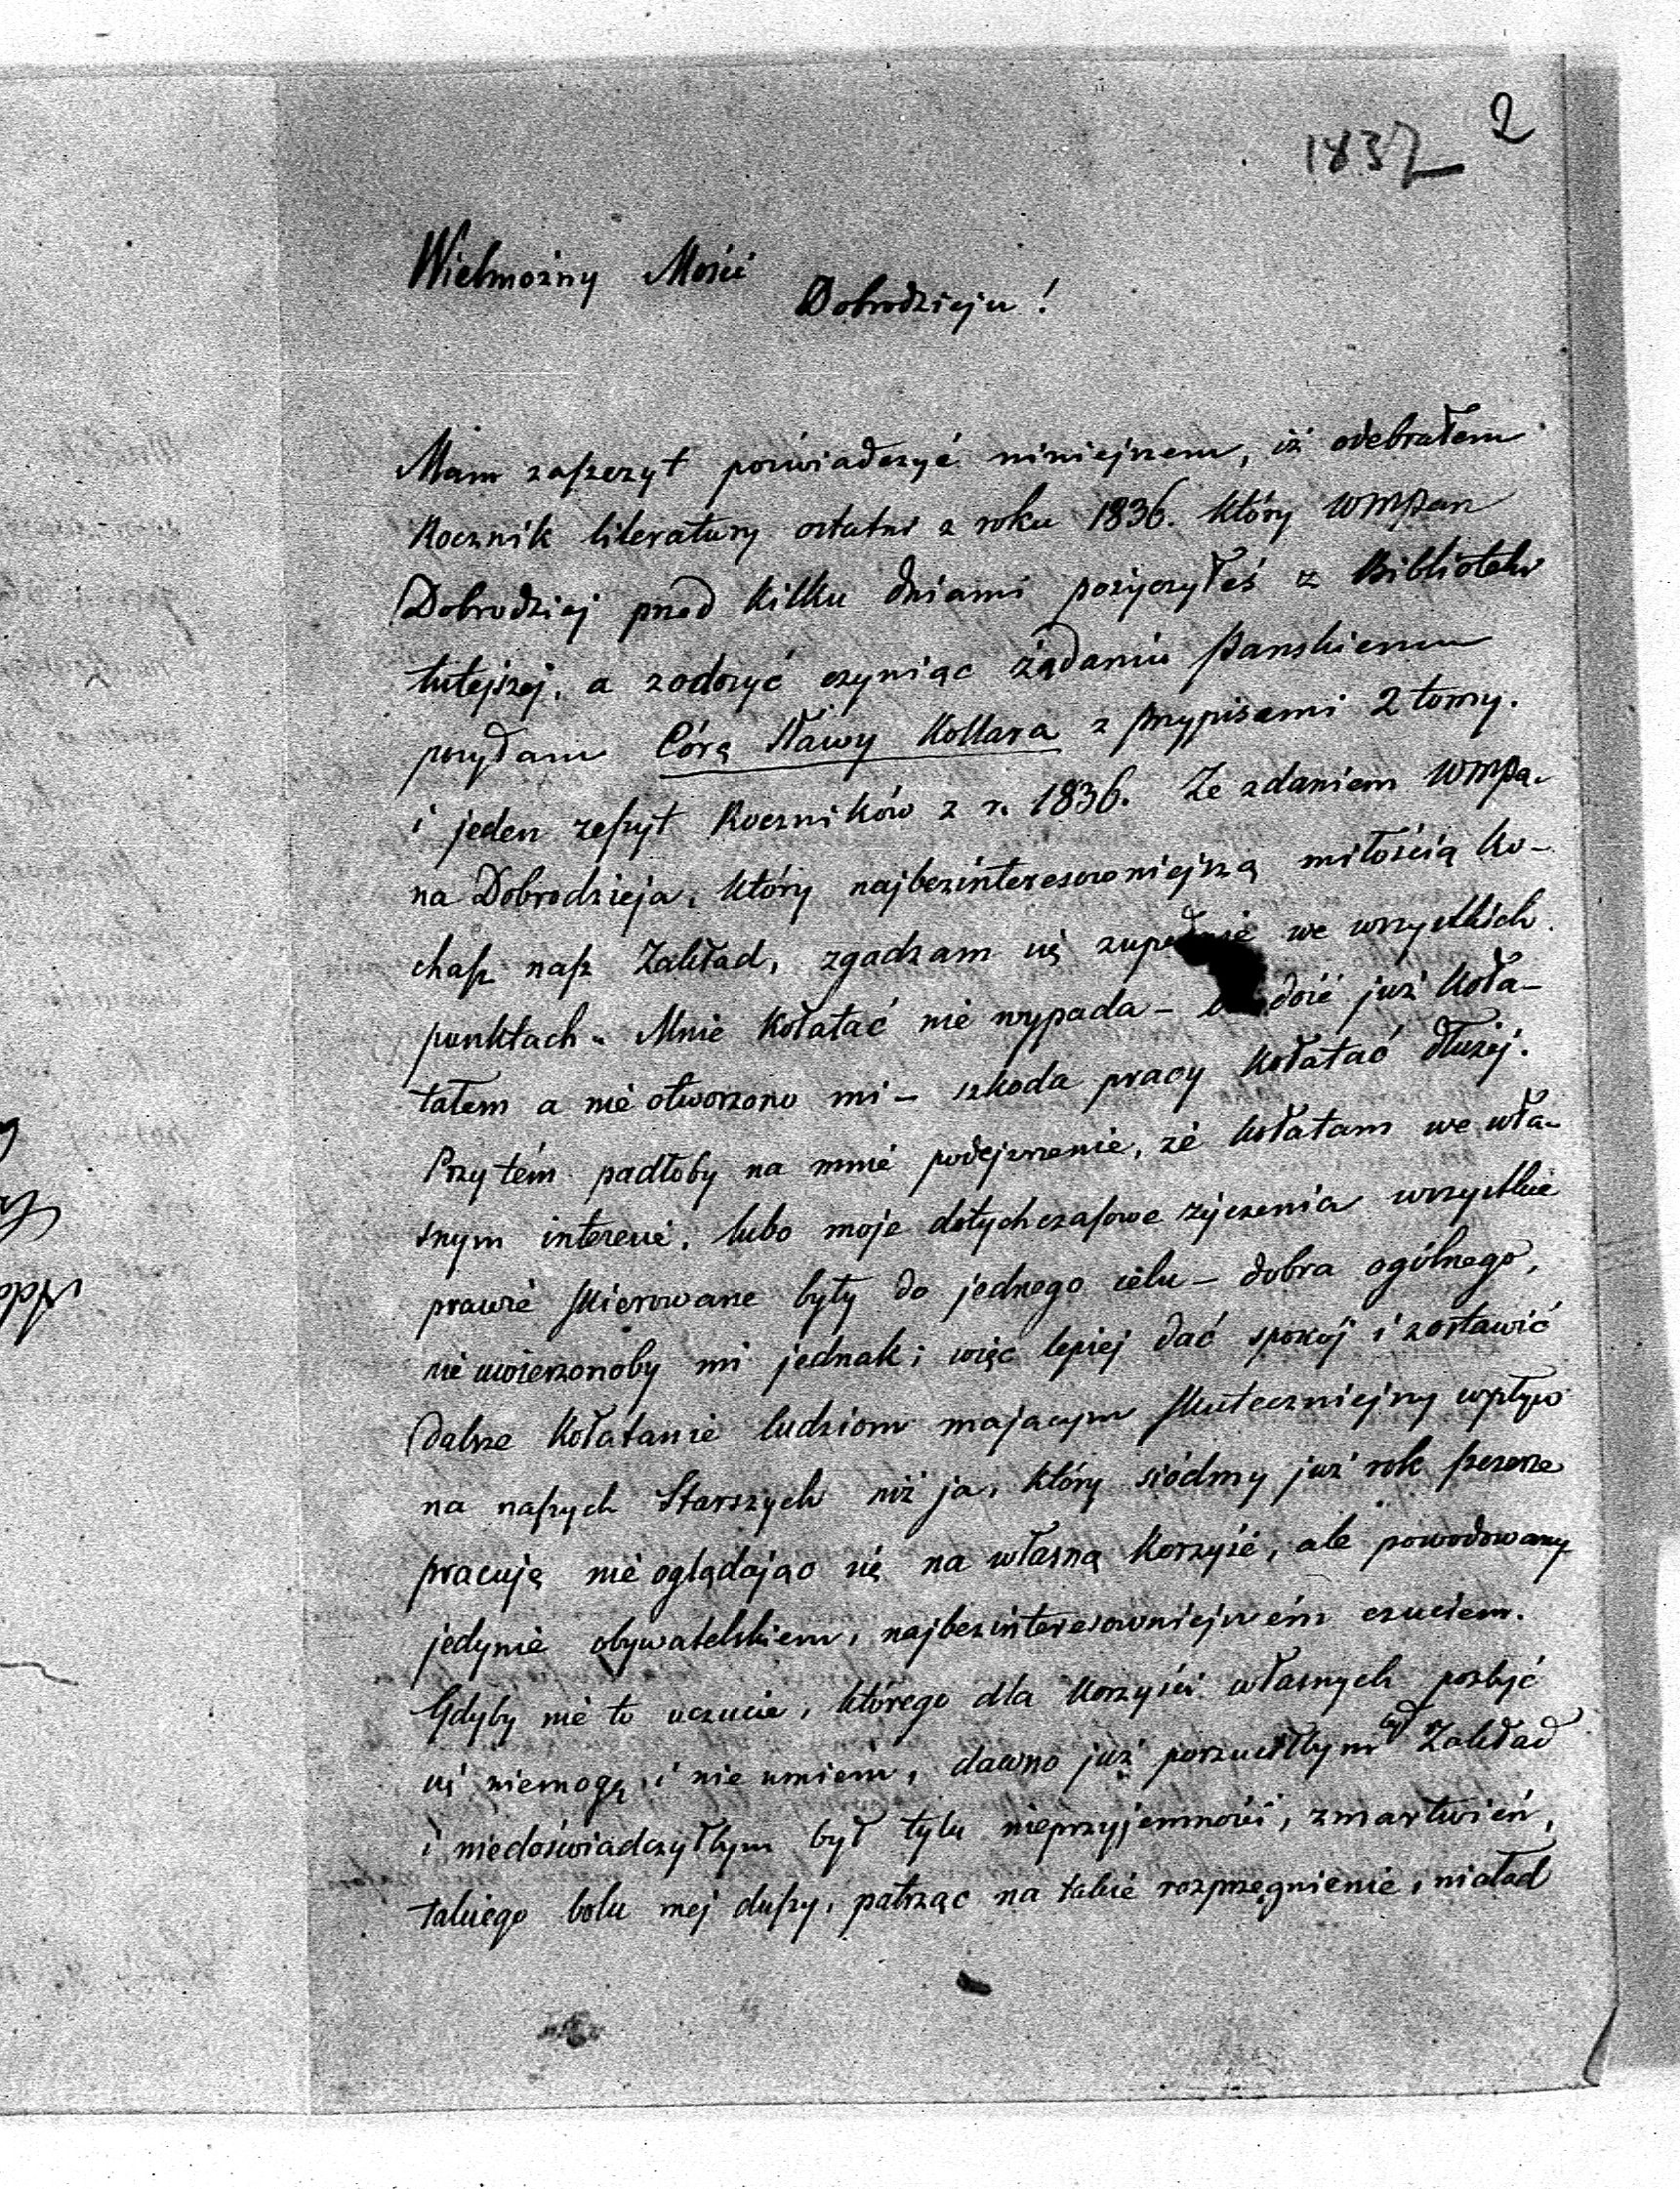 2
1837
Wielmożny Mości
Dobrodzieju!
Mam zaszczyt poświadczyć niniejszem, iż odebrałem
Rocznik literatury ostatni z roku 1836. który WMPan
Dobrodziej przed kilku dniami pożyczyłeś z Biblioteki
tutejszej, a zadosyć czyniąc żądaniu Panskiemu
posyłam Córę Sławy Kollara z przypisami 2 tomy.
i jeden zeszyt Roczników z r. 1836. Ze zdaniem WMPa-
na Dobrodzieja, który najbezinteresowniejszą miłością ko-
chasz nasz Zakład, zgadzam się zupełnie we wszystkich
punktach. Mnie kołatać nie wypada – dość już koła-
tałem a nie otworzono mi – szkoda pracy kołatać dłużej.
Przytém padłoby na mnie podejrzenie, że kołatam we wła-
snym interesie, lubo moje dotychczasowe życzenia wszystkie
prawie skierowane były do jednego celu – dobra ogólnego,
nie uwierzonoby mi jednak; więc lepiej dać spokój i zostawić
dalsze kołatanie ludziom mającym skuteczniejszy wpływ
na naszych Starszych niż ja, który siódmy już rok szczerze
pracuję nie oglądając się na własną korzyść, ale powodowany
jedynie obywatelskiem, najbezinteresowniejszém czuciem.
Gdyby nie to uczucie, którego dla korzyści własnych pozbyć
się niemogę i nie umiem, dawno już porzuciłbym był Zakład
i niedoświadczyłbym był tylu nieprzyjemności, zmartwień,
takiego bolu mej duszy, patrząc na takie rozprzęgnienie, niеład